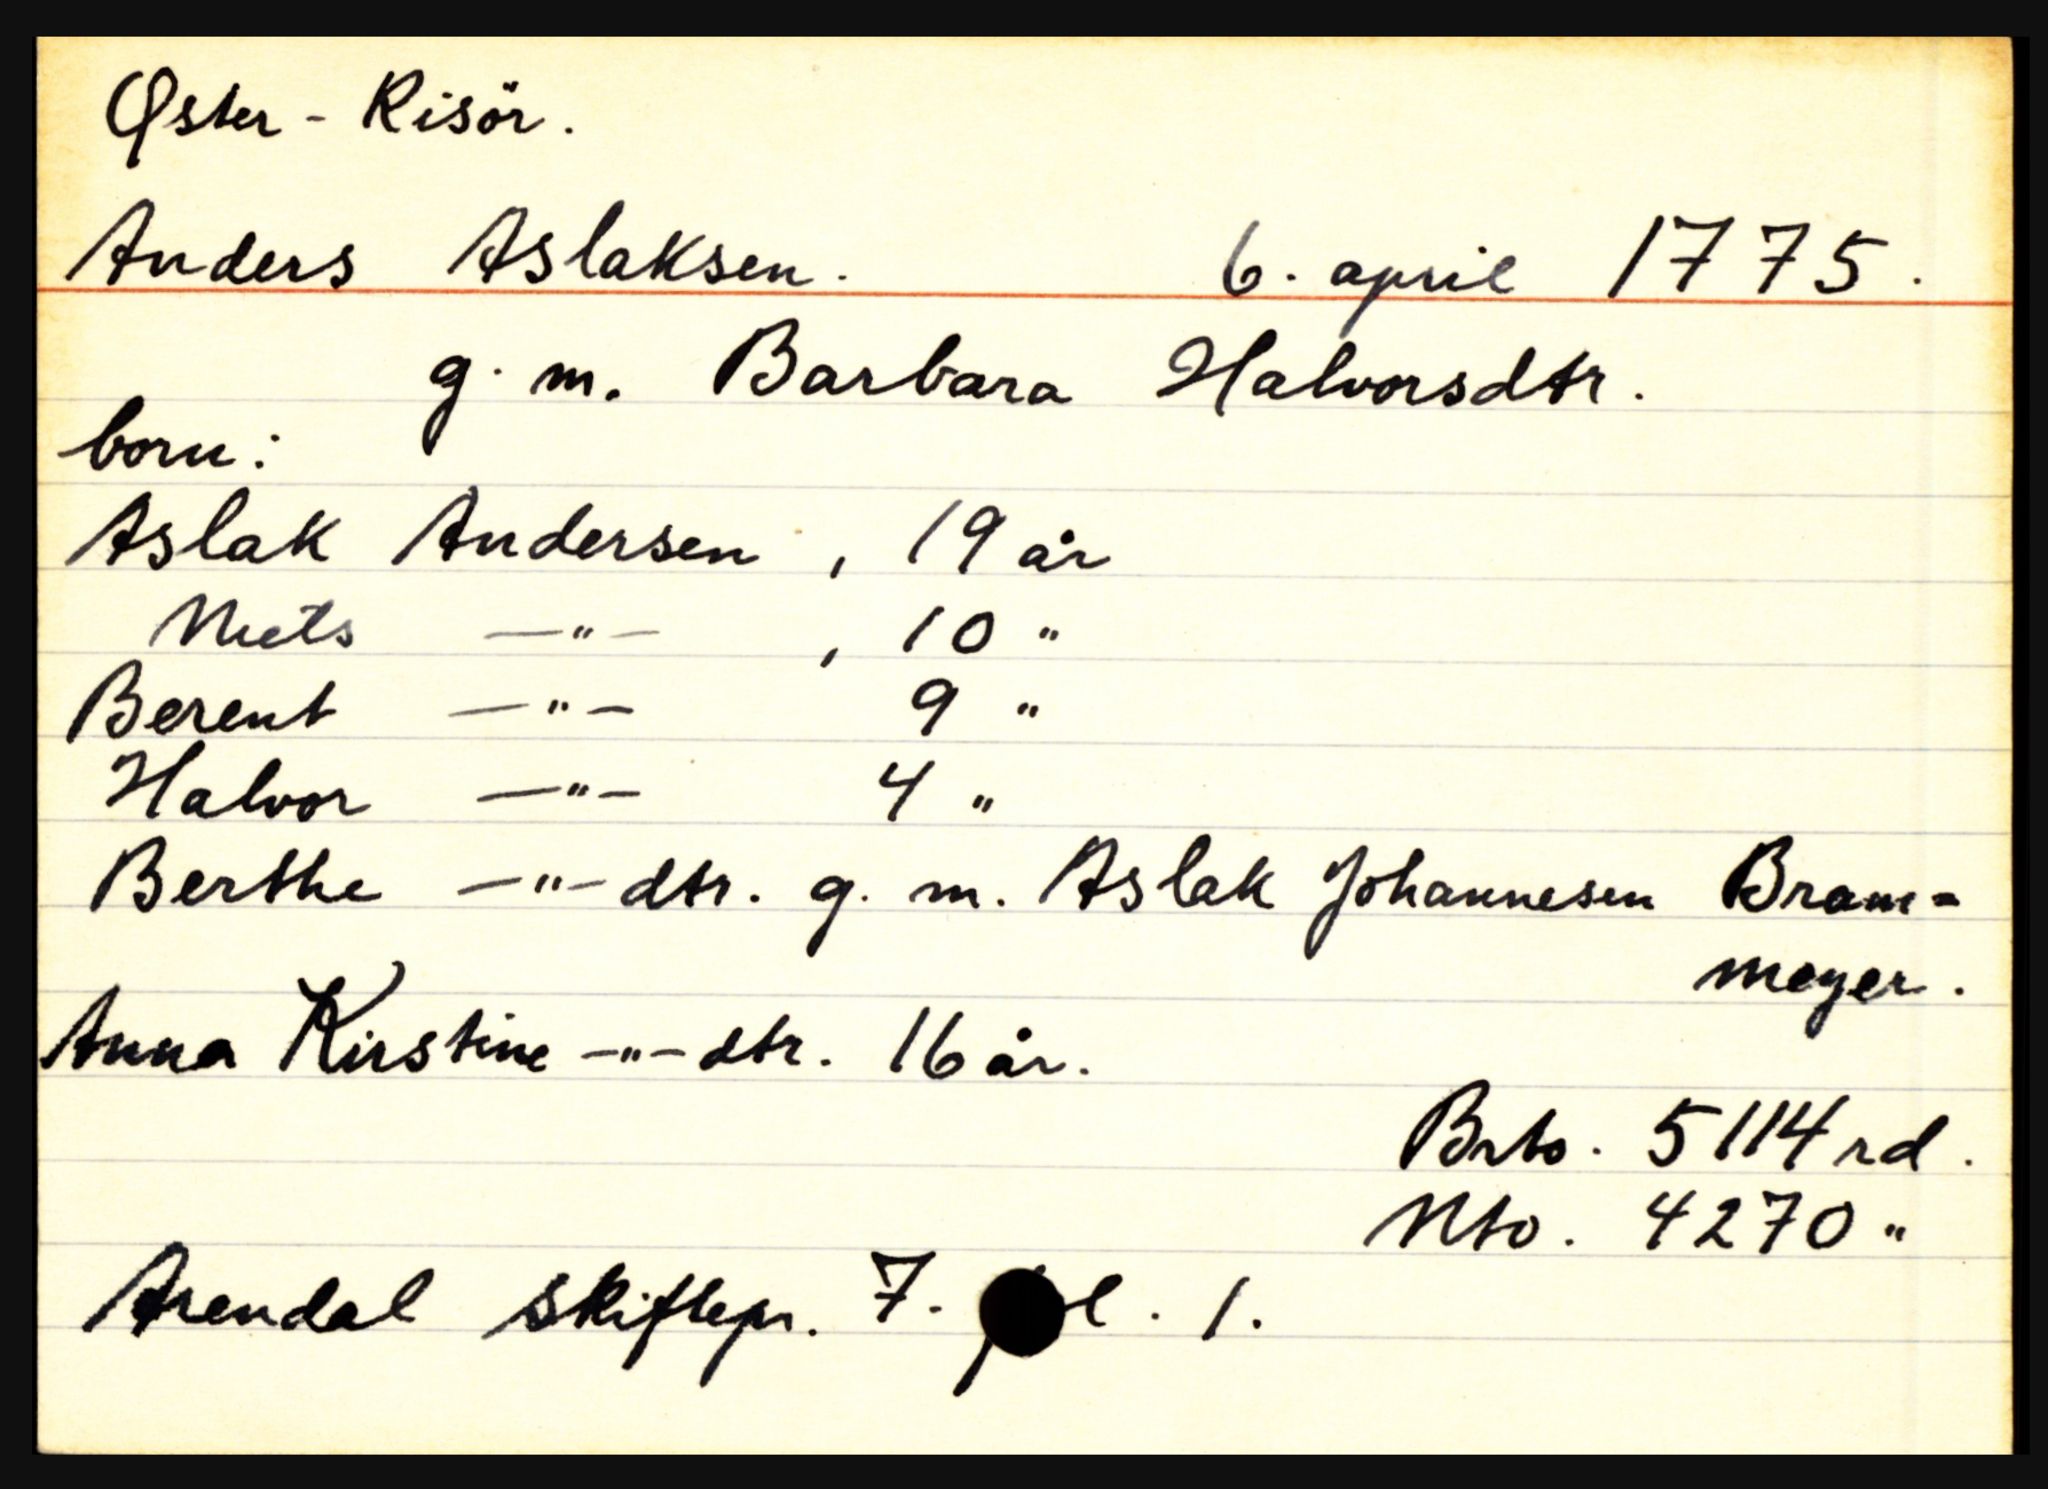 Øster - Risör.
Anders Aslaksen. 6. april 1775.
g. m. Barbara Halvorsdtr.
born:
Aslak Andersen, 19 år
Niels —"— , 10 "
Berent —"— 9 "
Halvor —"— 4 "
Berthe —"— dtr. g. m. Aslak Johannesen Bram=
meyer.
Anna Kirstine —"— dtr. 16 år.
Brto. 5114 rd.
Nto. 4270 "
Arendal skiftepr. 7. fol. 1.